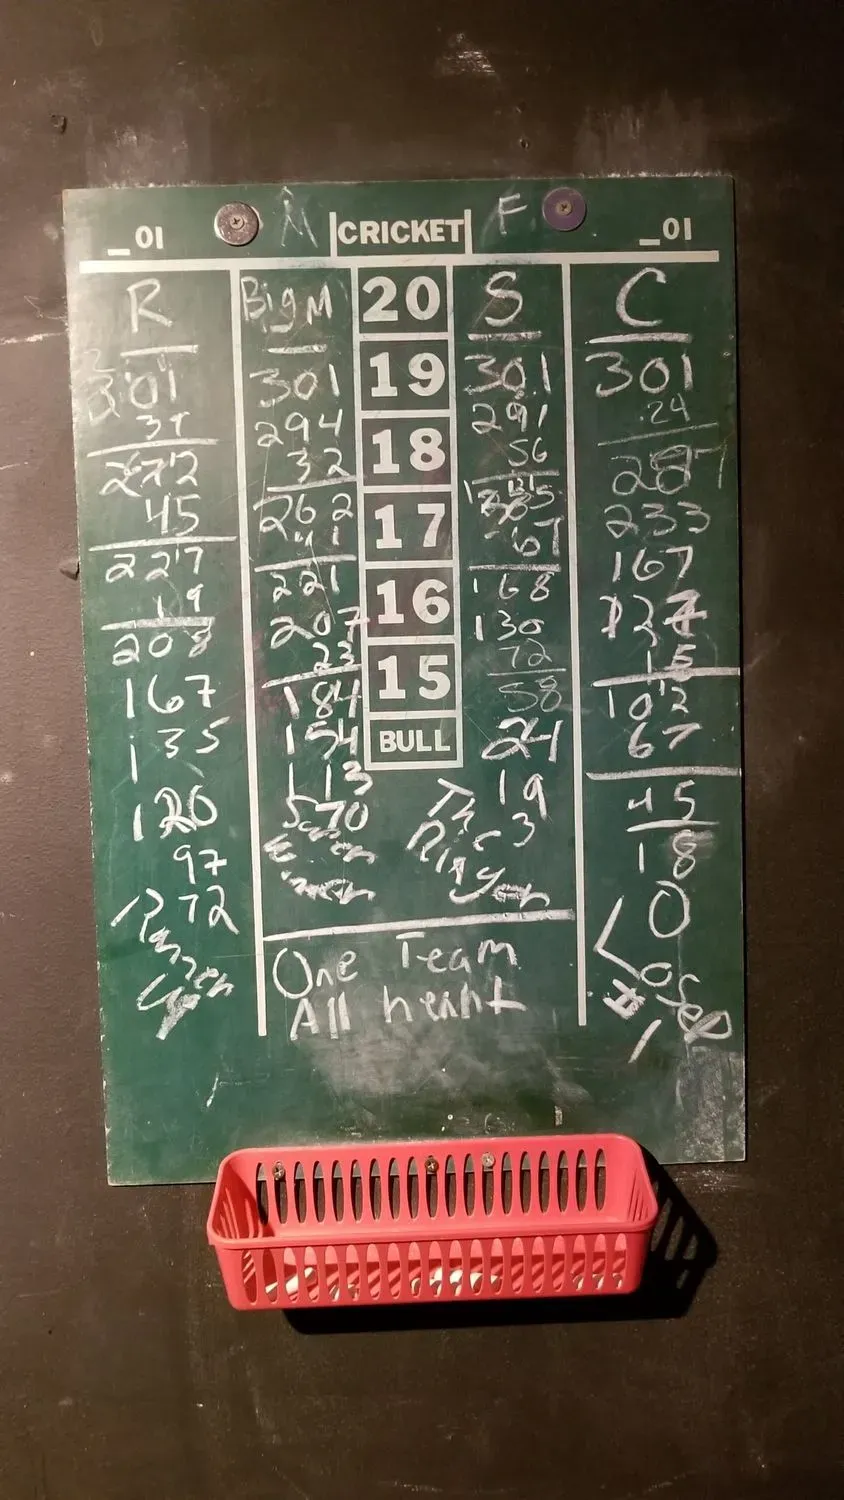 M F
_01 CRICKET _01
R
301
272
45
227
19
208
167
135
120
97
72
Runner
Up
Big M
301
294
32
262
41
221
207
23
184
154
113
70
20
19
18
17
16
15
BULL
S
301
291
56
67
168
130
72
58
24
19
3
The
Ringer
C
301
24
233
167
15
102
67
45
18
0
One Team
All heart